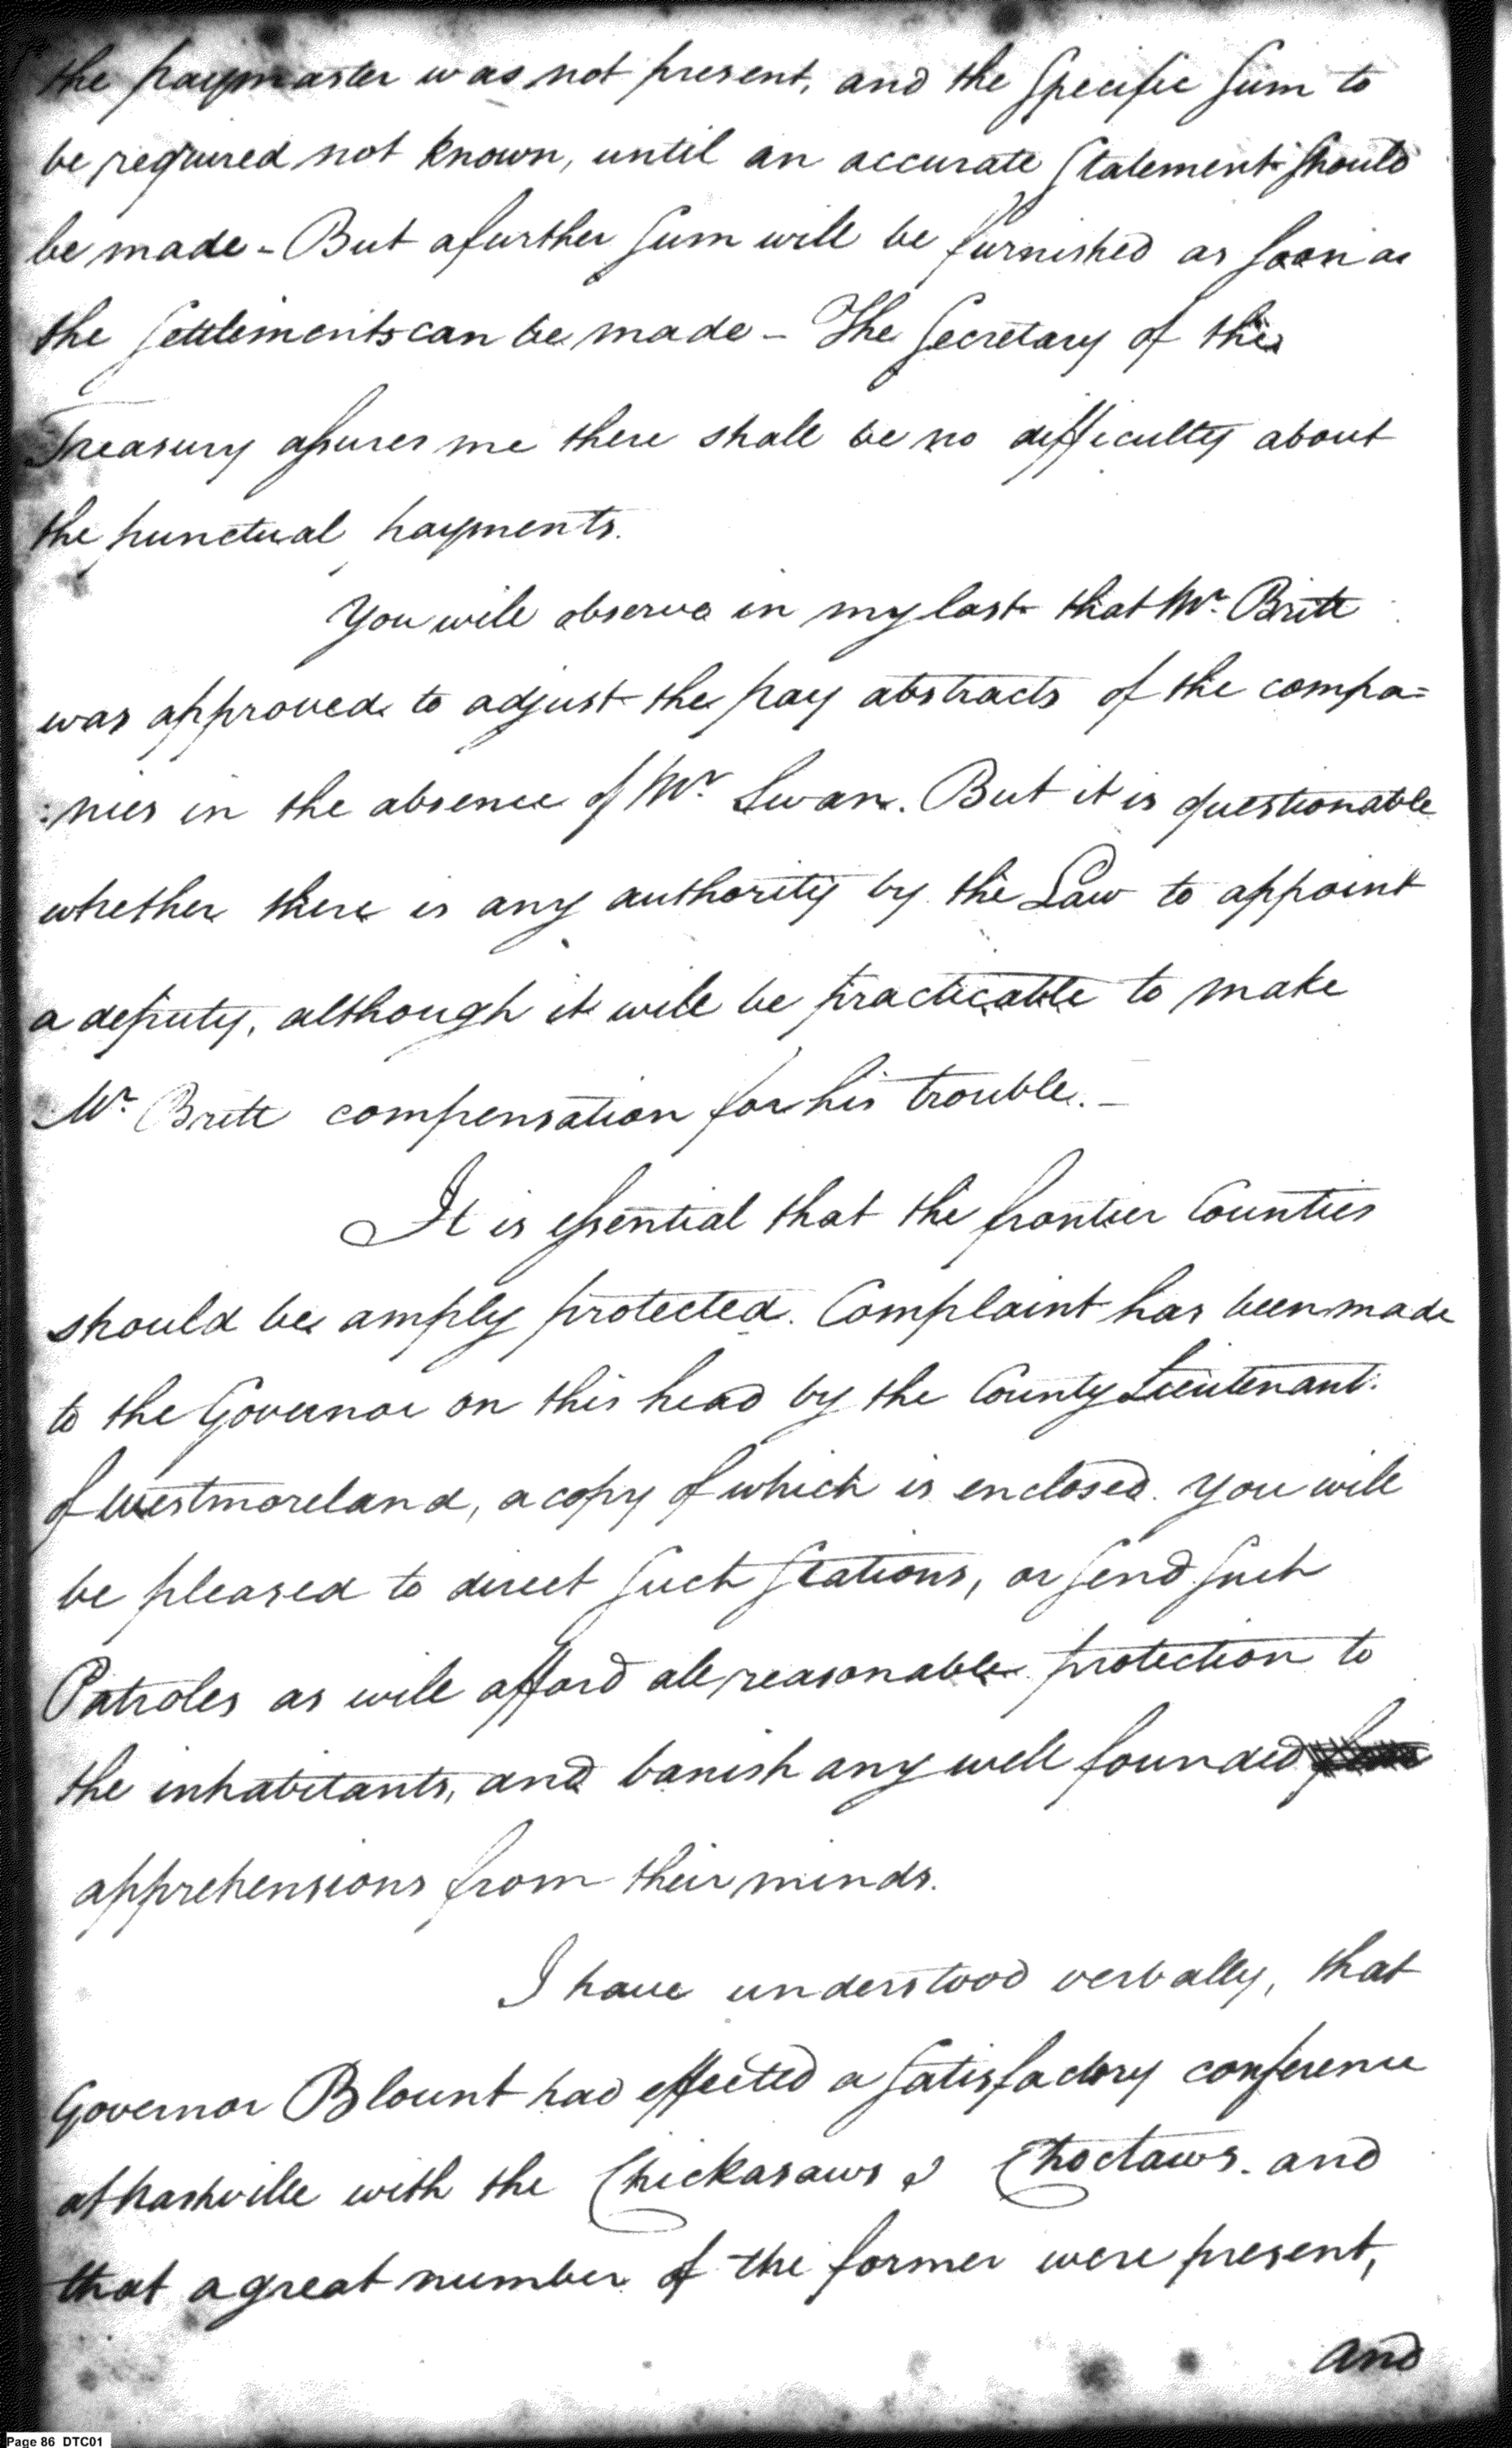 the paymaster was not present, and the specific sum to
be required not known, until an accurate statement should
be made - But a further sum will be furnished as soon as
the settlements can be made - The Secretary of the
Treasury assures me there shall be no difficulty about
the punctual payments.
You will observe in my last that Mr. Britt
was approved to adjust the pay abstracts of the compa=
:nies in the absence of Mr Swan. But it is questionable
whether there is any authority by the Law to appoint
a deputy, although it will be practicable to make
Mr. Britt compensation for his trouble. -
It is essential that the frontier Counties
should be amply protected. Complaint has been made
to the Governor on this head by the County Lieutenant.
of Westmoreland, a copy of which is enclosed. You will
be pleased to direct such stations, or send such
Patroles as will afford all reasonable protection to
the inhabitants, and banish any well founded
apprehensions from their minds.
I have understood verbally, that
Governor Blount had effected a satisfactory conference
at Nashville with the Chickasaws & Choctaws. and
that a great number of the former were present,
and
Page 86 DTC01